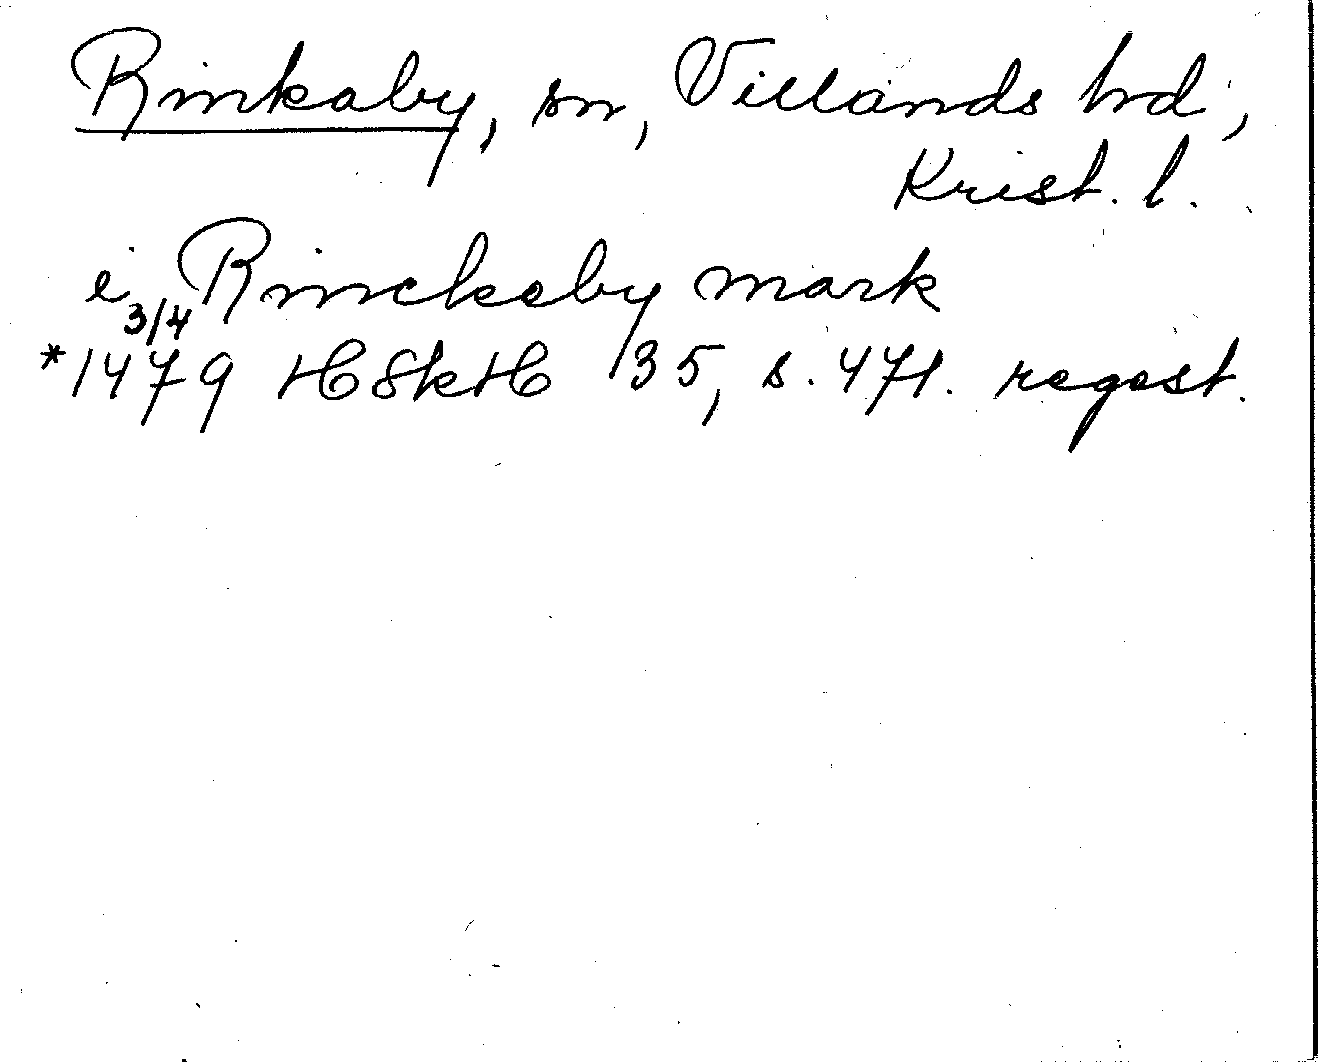 Rinkaby, sn, Villands hrd,
Krist. l.
i Rinckeby mark
3/4
*1479 HSkH 135, s. 471. regest.